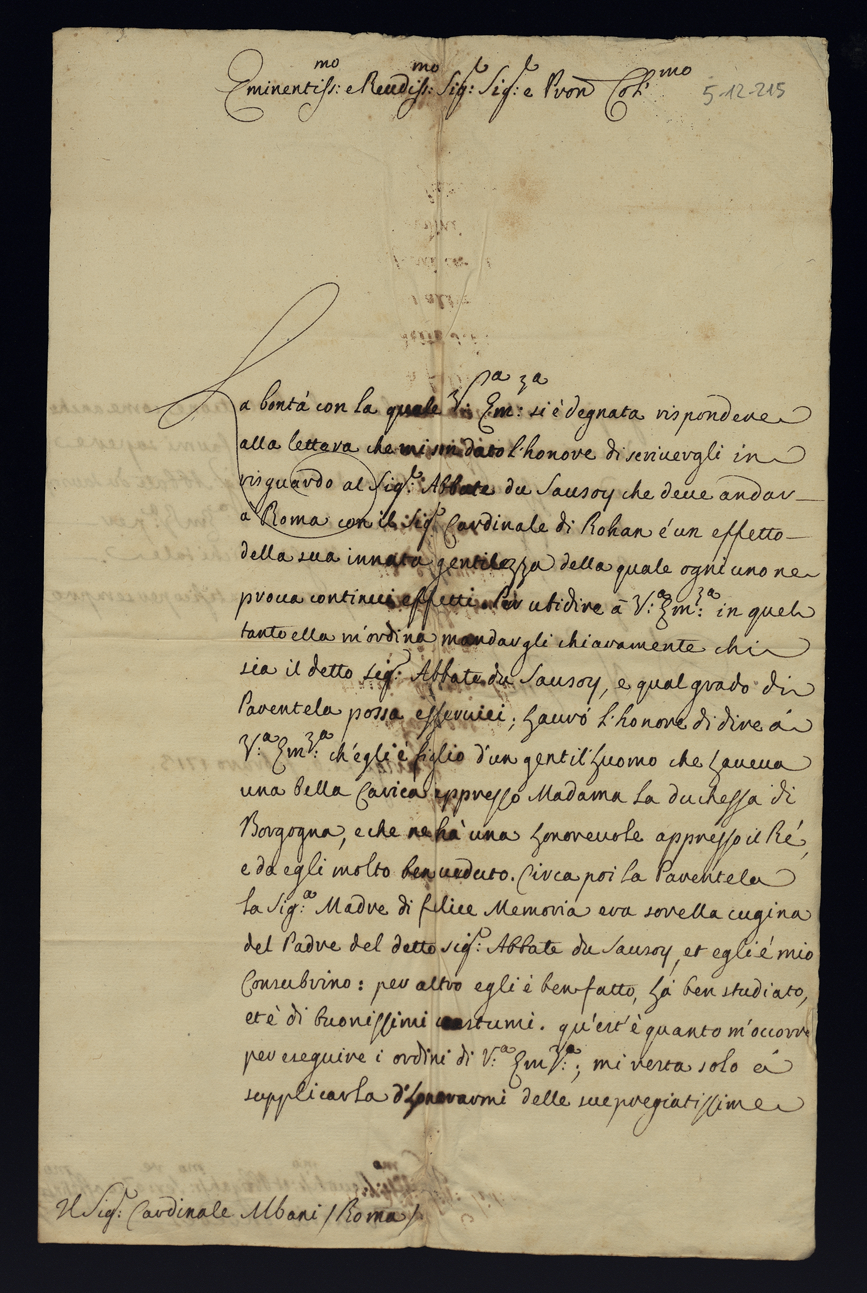 Eminentiss:mo e Reudiss:mo Sigr: Sigr: e Pron Col:mo
5-12-215
La bontá con la quale V:ra Em:za si é degnata rispondere
alla lettera che mi son dato l'honore di scrivergli in
risguardo al Sigr: Abbate du Sausoy che deue andar
á Roma con il Sigr: Cardinale di Rohan é un effetto
della sua innata gentilezza della quale ogni uno ne
proua continui effetti. Per ubidire á V:a Em:za in quel
tanto ella m'ordina mandargli chiaramente chi
sia il detto sigr: Abbate du Sausoy, e qual grado di
Parentela possa esseruici; hauró l'honore di dire á
V:a Em:za ch'egli é figlio d'un gentil'huomo che haueua
una bella Carica appresso Madama la duchessa di
Borgogna, e che ne há una honoreuole appresso il Ré,
e da egli molto ben ueduto. Circa poi la Parentela
la Sig:a Madre di felice Memoria era sorella cugina
del Padre del detto sigr: Abbate du Sausoy, et egli é mio
Consubrino: per altro egli é ben fatto, há ben studiato,
et é di buonissimi costumi. quest'é quanto m'occorre
per eseguire i ordini di V:a Em:za; mi resta solo á
supplicarla d'honorarmi delle sue pregiatissime
Il Sigr: Cardinale Albani / Roma /